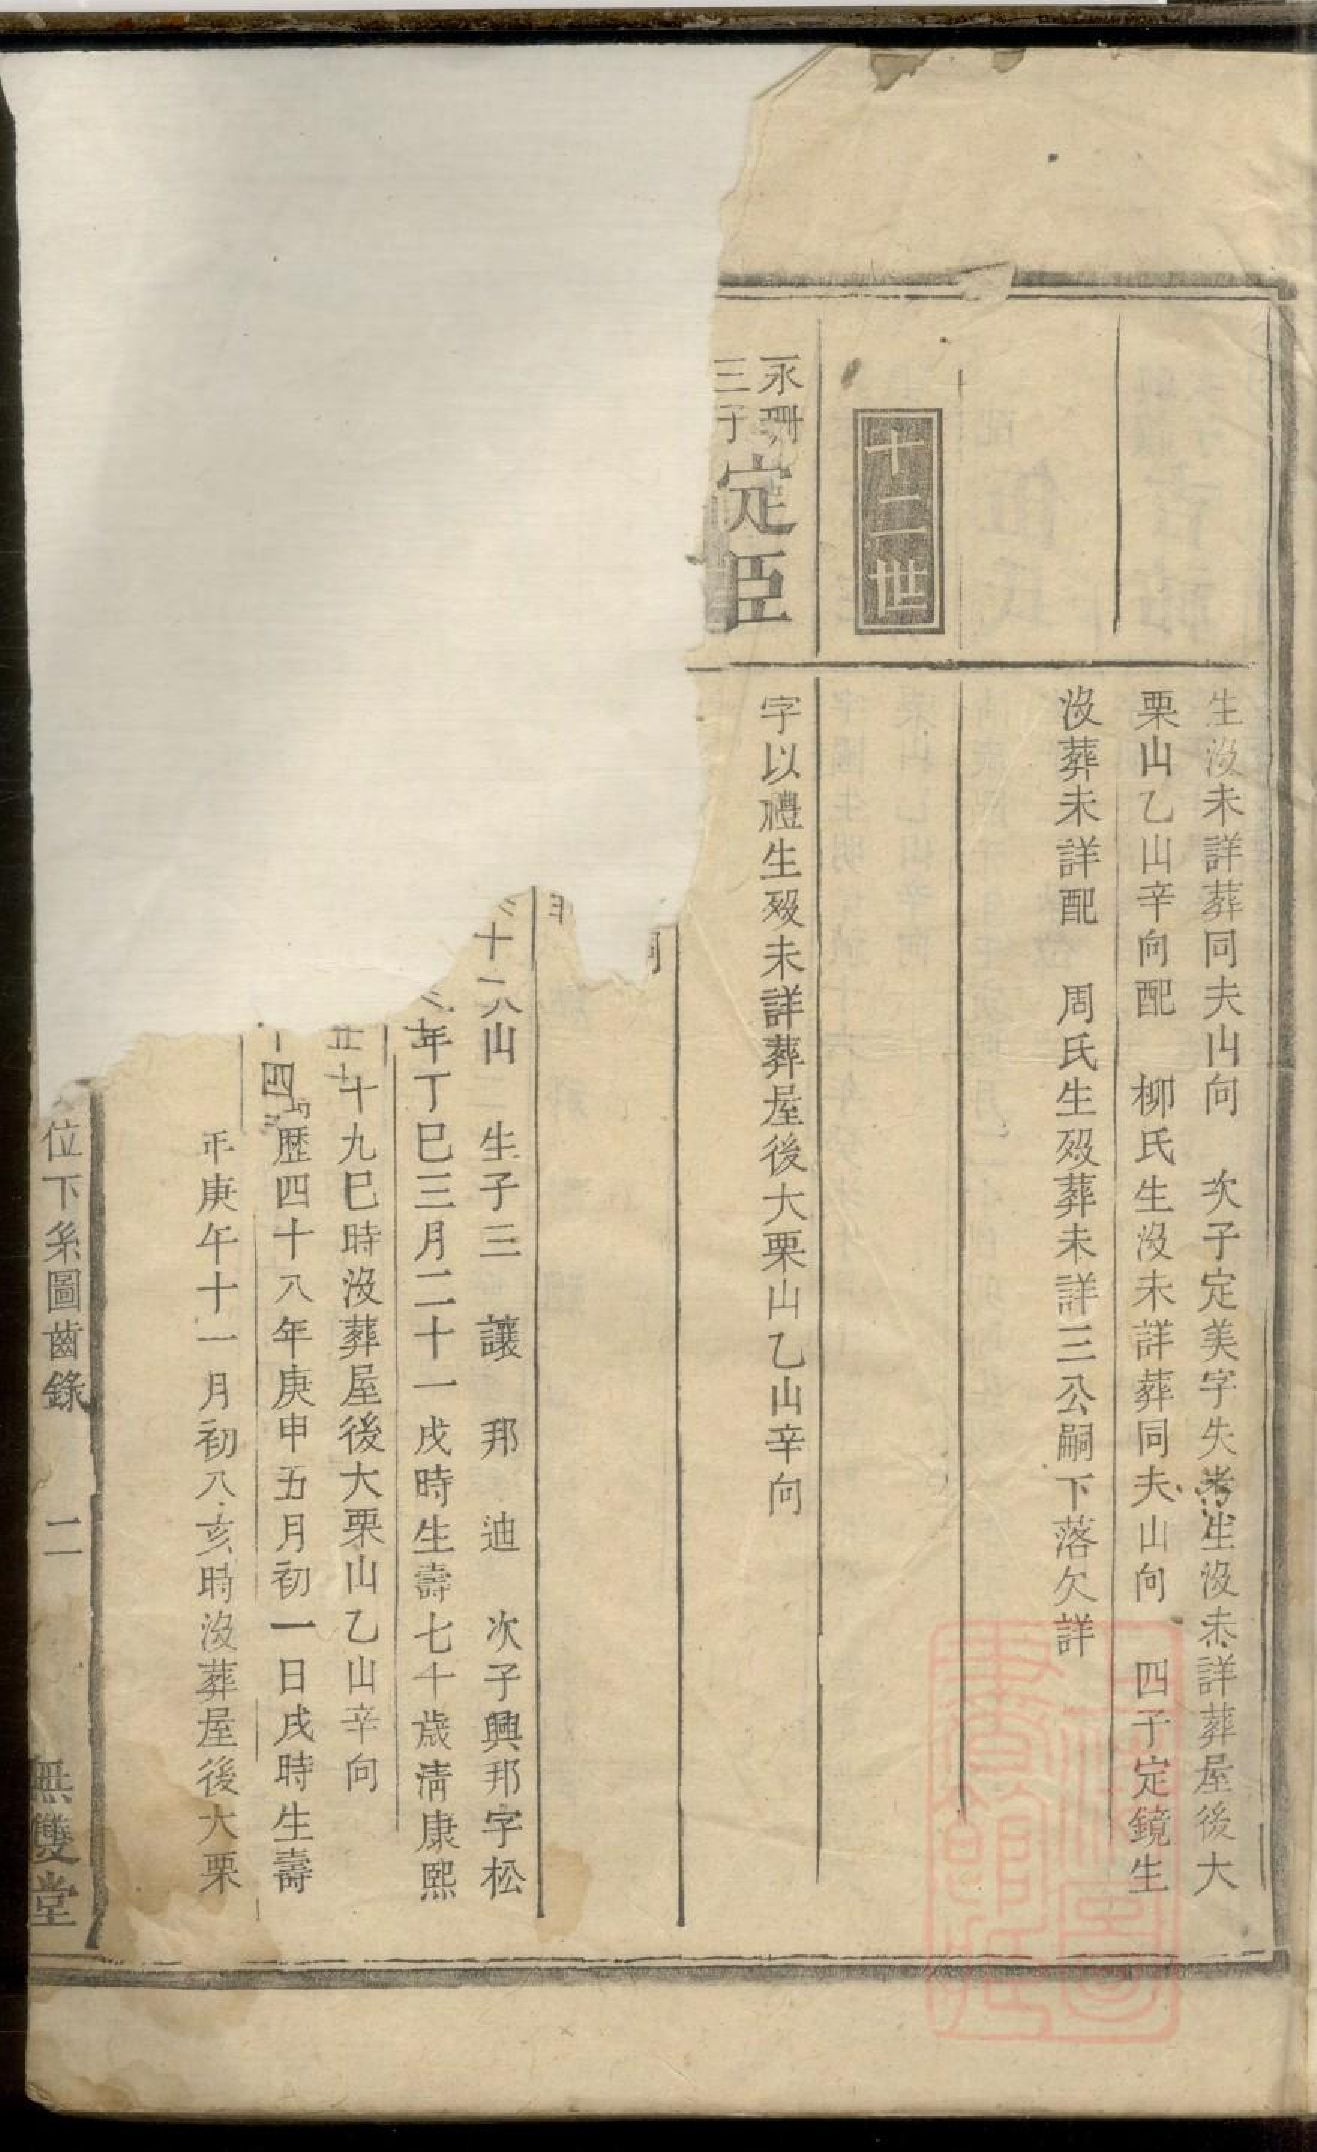 生沒未詳葬同夫山向　次子定美字失考生沒未詳葬屋後大
栗山乙山辛向配　柳氏生沒未詳葬同夫山向　四子定鏡生
沒葬未詳配　周氏生歿葬未詳三公嗣下落欠詳
十二世
永珊
三子
定臣
字以禮生歿未詳葬屋後大栗山乙山辛向
十六山　生子三　讓　邦　迪　次子興邦字松
年丁巳三月二十一戌時生壽七十歲淸康熙
十九巳時沒葬屋後大栗山乙山辛向
歷四十八年庚申五月初一日戌時生壽
年庚午十一月初八亥時沒葬屋後大栗
位下系圖齒錄　二　無雙堂